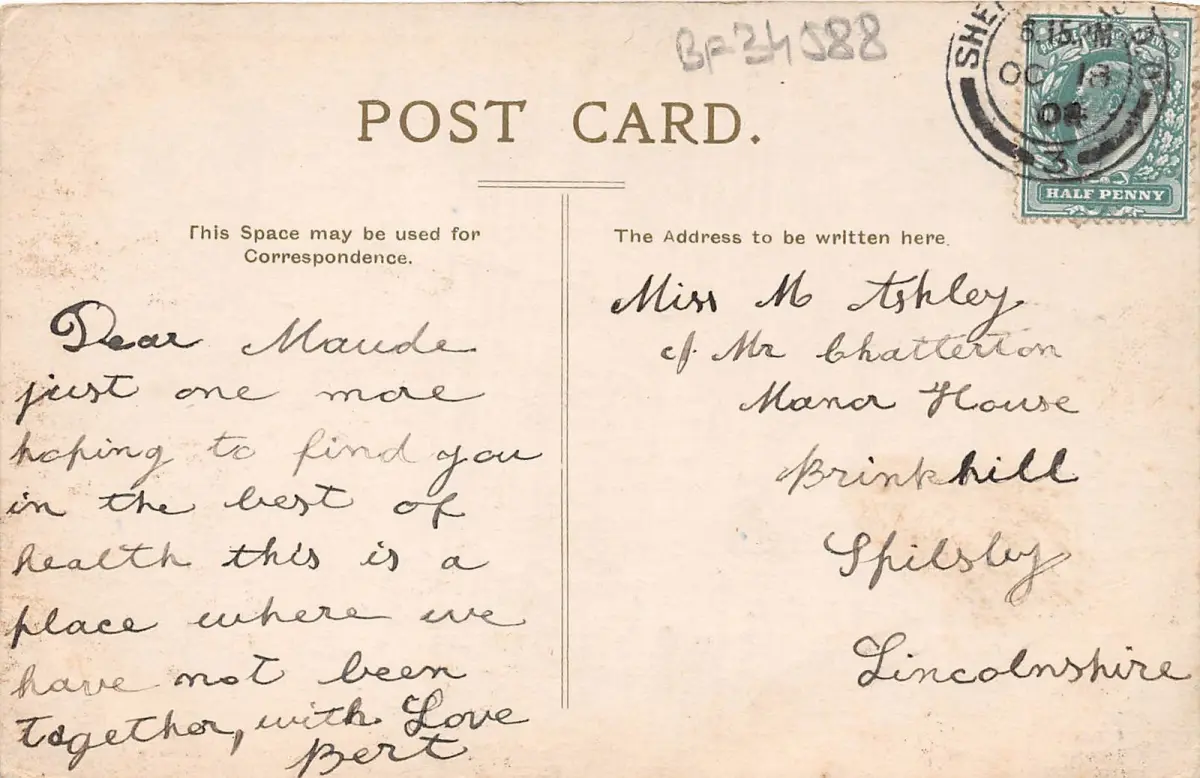 BF34088
POST CARD.
6.15 PM
OC 13
3
HALF PENNY
This Space may be used for
Correspondence.
The Address to be written here.
Dear Maude
just one more
hoping to find you
in the best of
health this is a
place where we
have not been
together, with Love
Bert
Miss M Ashley
c/. Mr Chatterton
Manor House
Brinkhill
Spilsby
Lincolnshire